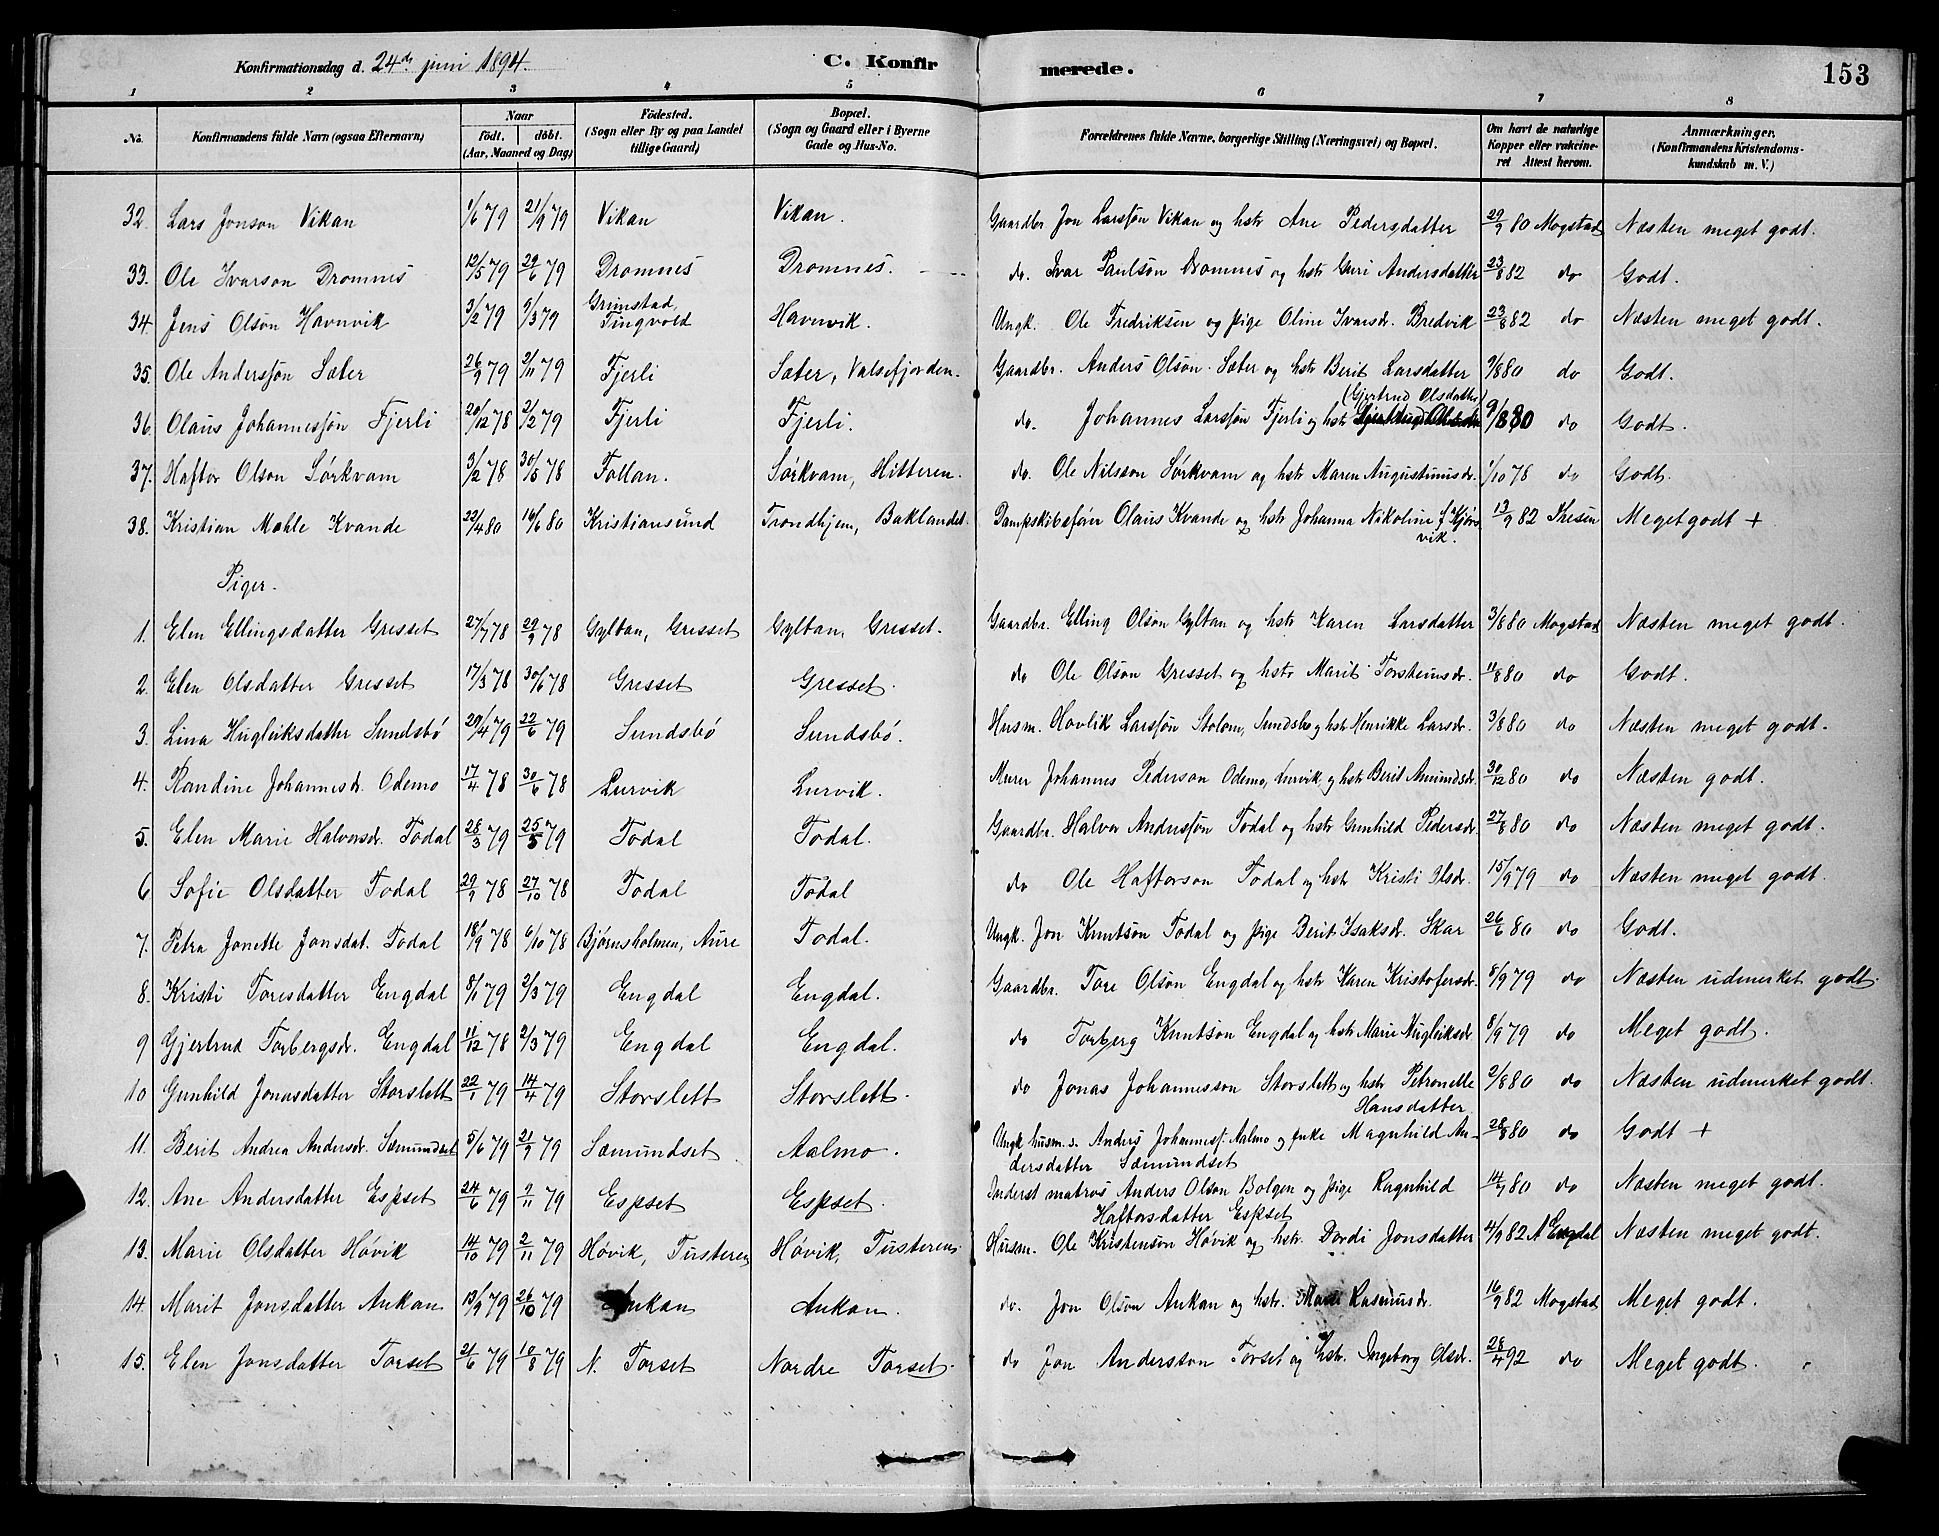 Konfirmationsdag d. 24de juni 1894. C. Konfirmerede. 153
1 2 3 4 5 6 7 8
No. Konfirmandens fulde Navn (ogsaa Efternavn) Naar födt. döbt. (Aar, Maaned og Dag) Födested. (Sogn eller By og paa Landet tillige Gaard) Bopæl. (Sogn og Gaard eller i Byerne Gade og Hus-No. Forældrenes fulde Navne, borgerlige Stilling (Næringsvei) og Bopæl. Om havt de naturlige Kopper eller vakcineret Attest herom. Anmærkninger. (Konfirmandens Kristendomskundskab m. V.)
32. Lars Jonson Vikan 1/6 79 21/9 79 Vikan Vikan. Gaardbr Jon Larssön Vikan og hstr Ane Pedersdatter 29/9 80 Mogstad Næsten meget godt.
33. Ole Ivarson Dromnes 12/5 79 29/6 79 Dromnes Dromnes. do. Ivar Paulsön Dromnes og hstr Guri Andersdatter 23/8 82 do Godt.
34. Jens Olsön Havnvik 3/2 79 9/3 79 Grimstad, Tingvold Havnvik. Ungk. Ole Fredriksen og pige Oline Ivarsdr. Bredvik 23/8 82 do Næsten meget godt.
35. Ole Anderssön Sæter 26/9 79 2/11 79 Fjerli Sæter, Valsøfjorden. Gaardbr. Anders Olsön Sæter og hstr Berit Larsdatter 9/8 80 do Godt.
36. Olaus Johannessön Fjerli 20/12 78 2/2 79 Fjerli Fjerli. do. Johannes Larssön Fjerli og hstr (Gjertrud Olsdatter) 9/8 80 do Godt.
37. Haftor Olson Sörkvam 3/2 78 30/5 78 Follan. Sörkvam, Hitteren. do. Ole Nilsson Sörkvam og hstr Maren Augustinusdr. 1/10 78 do Godt.
38. Kristian Mæhle Kvande 22/4 80 16/6 80 Kristiansund Trondhjem, Baklandet. Dampskibsförer Olaus Kvande og hstr Johanna Nikoline f Kjörsvik. 13/9 82 Thesen Meget godt +
Piger.
1. Elen Ellingsdatter Gresset 27/7 78 29/9 78 Gyltan, Gresset Gyltan, Gresset. Gaardbr. Elling Olsön Gyltan og hstr Karen Larsdatter 3/8 80 Mogstad Næsten meget godt.
2. Elen Olsdatter Gresset 17/3 78 30/6 78 Gresset Gresset. do Ole Olsön Gresset og hstr Marit Torsteinsdr. 11/8 80 do Godt.
3. Lina Hugleiksdatter Sundsbö 29/4 79 22/6 79 Sundsbö Sundsbö. Husm. Hovlik Larssön Stolom, Sundsbö og hstr Henrikke Larsdr. 3/8 80 do Næsten meget godt.
4. Randine Johannesdr. Odemo 17/4 78 30/6 78 Lurvik Lurvik. Murer Johannes Pederson Odemo, Lurvik og hstr Berit Amundsdr. 30/12 80 do Næsten godt.
5. Elen Marie Halvorsdr. Todal 28/3 79 25/5 79 Todal Todal. Gaardbr. Halvor Anderssön Todal og hstr Gunhild Pedersdr. 27/8 80 do Næsten meget godt.
6 Sofie Olsdatter Todal 29/9 78 27/10 78 Todal Todal do Ole Haftorson Todal og hstr Kristi Olsdr. 15/9 79 do Næsten meget godt.
7. Petra Jonette Jonsdat. Todal 18/9 78 6/10 78 Bjørnsholmen, Aure Todal. Ungk. Jon Knutsön Todal og pige Berit Isaksdr. Skar 26/6 80 do Godt.
8. Kristi Toresdatter Engdal 8/1 79 2/3 79 Engdal Engdal. Gaardbr. Tore Olsön Engdal og hstr Karen Kristofersdr. 8/9 79 do Næsten udmerket godt.
9 Gjertrud Torbergsdr. Engdal 11/12 78 2/3 79 Engdal Engdal. do Torberg Knutson Engdal og hstr Marie Hugleiksdr 8/9 79 do Meget godt.
10 Gunhild Jonasdatter Storslett 22/1 79 14/4 79 Storslett Storslett. do Jonas Johannesson Storslett og hstr Petronelle Hansdatter 2/8 80 do Næsten udmerket godt.
11. Berit Andrea Andersdr. Sæmundset 5/6 79 21/9 79 Sæmundset Aalmo. Ungk husm. s. Anders Johanness. Aalmo og enke Magnhild Andersdatter Sæmundset 28/8 80 do Godt +
12. Ane Andersdatter Espset 24/6 79 9/11 79 Espset Espset. Inderst matros Anders Olson Bolgen og pige Ragnhild Haftorsdatter Espset 14/7 80 do Næsten meget godt.
13. Marie Olsdatter Hövik 14/10 79 2/11 79 Hövik, Tusteren Hövik, Tusteren. Husm. Ole Kristensön Hövik og hstr. Dordi Jonsdatter 4/9 82 A Engdal Næsten meget godt.
14. Marit Jonsdatter Aukan 13/9 79 26/10 79 Aukan Aukan. do. Jon Olsön Aukan og hstr. Marit Rasmusdr. 16/9 82 Mogstad Meget godt.
15. Elen Jonsdatter Torset 21/6 79 10/8 79 N. Torset Nordre Torset. do Jon Andersson Torset og hstr. Ingeborg Olsdr. 28/4 92 do Meget godt.